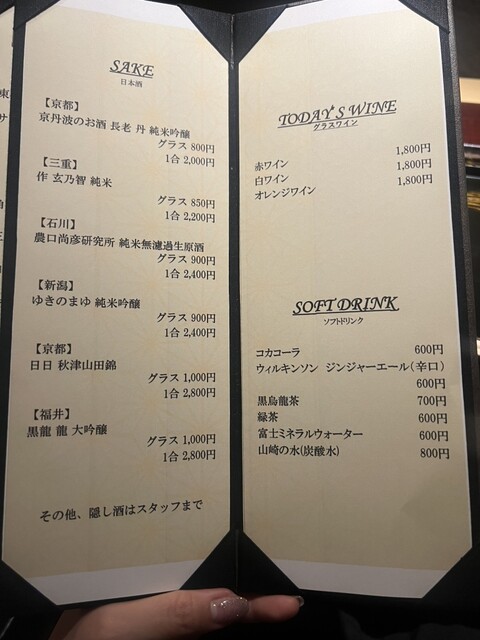 SAKE
日本酒
【京都】
京丹波のお酒 長老 丹 純米吟醸
グラス 800円
1合 2,000円
【三重】
作 玄乃智 純米
グラス 850円
1合 2,200円
【石川】
農口尚彦研究所 純米無濾過生原酒
グラス 900円
1合 2,400円
【新潟】
ゆきのまゆ 純米吟醸
グラス 900円
1合 2,400円
【京都】
日日 秋津山田錦
グラス 1,000円
1合 2,800円
【福井】
黒龍 龍 大吟醸
グラス 1,000円
1合 2,800円
その他、隠し酒はスタッフまで
TODAY'S WINE
グラスワイン
赤ワイン 1,800円
白ワイン 1,800円
オレンジワイン 1,800円
SOFT DRINK
ソフトドリンク
コカコーラ 600円
ウィルキンソン ジンジャーエール(辛口)
600円
黒烏龍茶 700円
緑茶 600円
富士ミネラルウォーター 600円
山崎の水(炭酸水) 800円